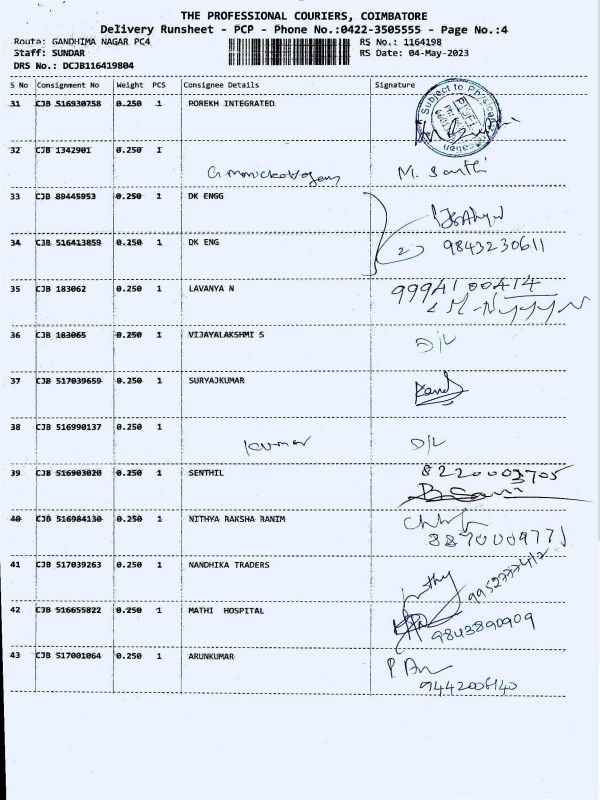 THE PROFESSIONAL COURIERS, COIMBATORE
Delivery Runsheet - PCP - Phone No.:0422-3505555 - Page No.:4
Route: GANDHIMA NAGAR PC4 RS No.: 1164198
Staff: SUNDAR RS Date: 04-May-2023
DRS No.: DCJB116419804
S No Consignment No Weight PCS Consignee Details Signature
31 CJB 516930758 0.250 1 ROREKH INTEGRATED
Subject to
32 CJB 1342901 0.250 1
M. Santhi
33 CJB 89445953 0.250 1 DK ENGG
34 CJB 516413859 0.250 1 DK ENG 2 9843230611
35 CJB 183062 0.250 1 LAVANYA N 9994100414
36 CJB 183065 0.250 1 VIJAYALAKSHMI S D/L
37 CJB 517039659 0.250 1 SURYAJKUMAR
38 CJB 516990137 0.250 1
kumar D/L
39 CJB 516903020 0.250 1 SENTHIL 8220003705
40 CJB 516984130 0.250 1 NITHYA RAKSHA RANIM
8870000977
41 CJB 517039263 0.250 1 NANDHIKA TRADERS 9952777412
42 CJB 516655822 0.250 1 MATHI HOSPITAL 9843890909
43 CJB 517001064 0.250 1 ARUNKUMAR
9442006140